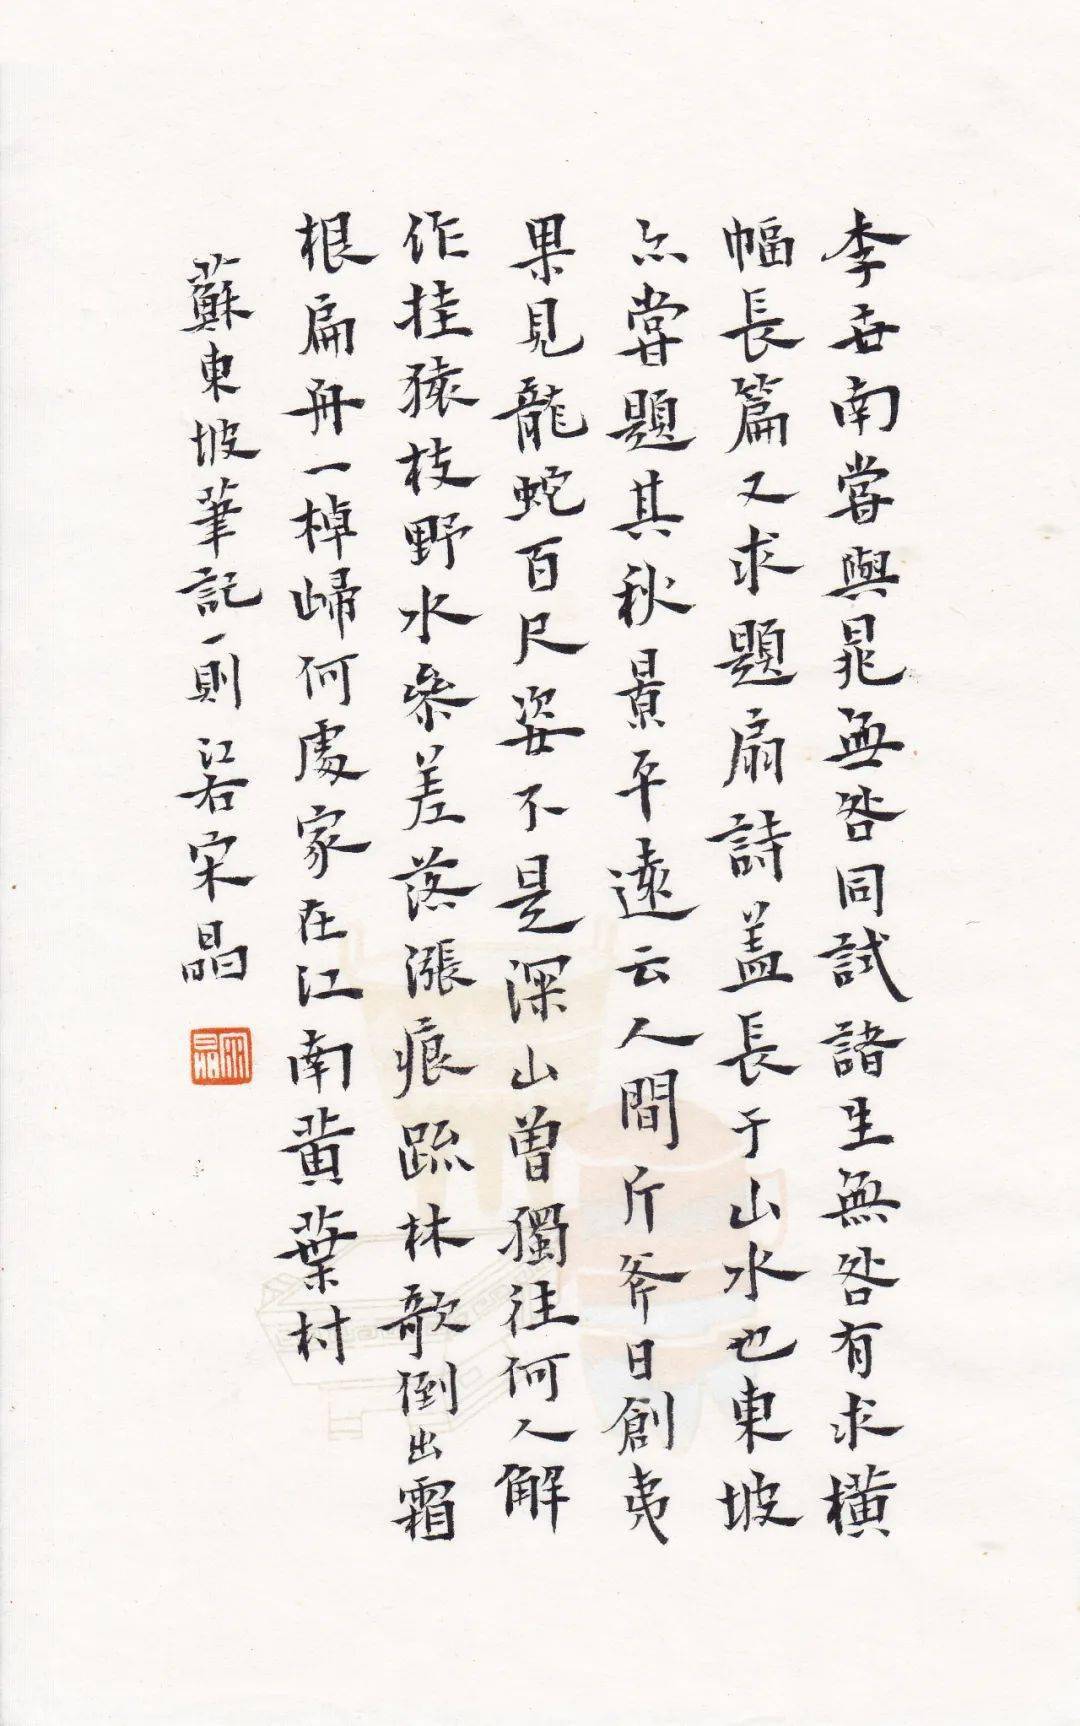 李世南嘗與晁無咎同試諸生無咎有求橫
幅長篇又求題扇詩盖長于山水也東坡
亦嘗題其秋景平遠云人間斤斧日創夷
果見龍蛇百尺姿不是深山曾獨往何人解
作挂猿枝野水參差落漲痕疏林欹倒出霜
根扁舟一棹歸何處家在江南黃葉村
蘇東坡筆記一則 江右宋晶